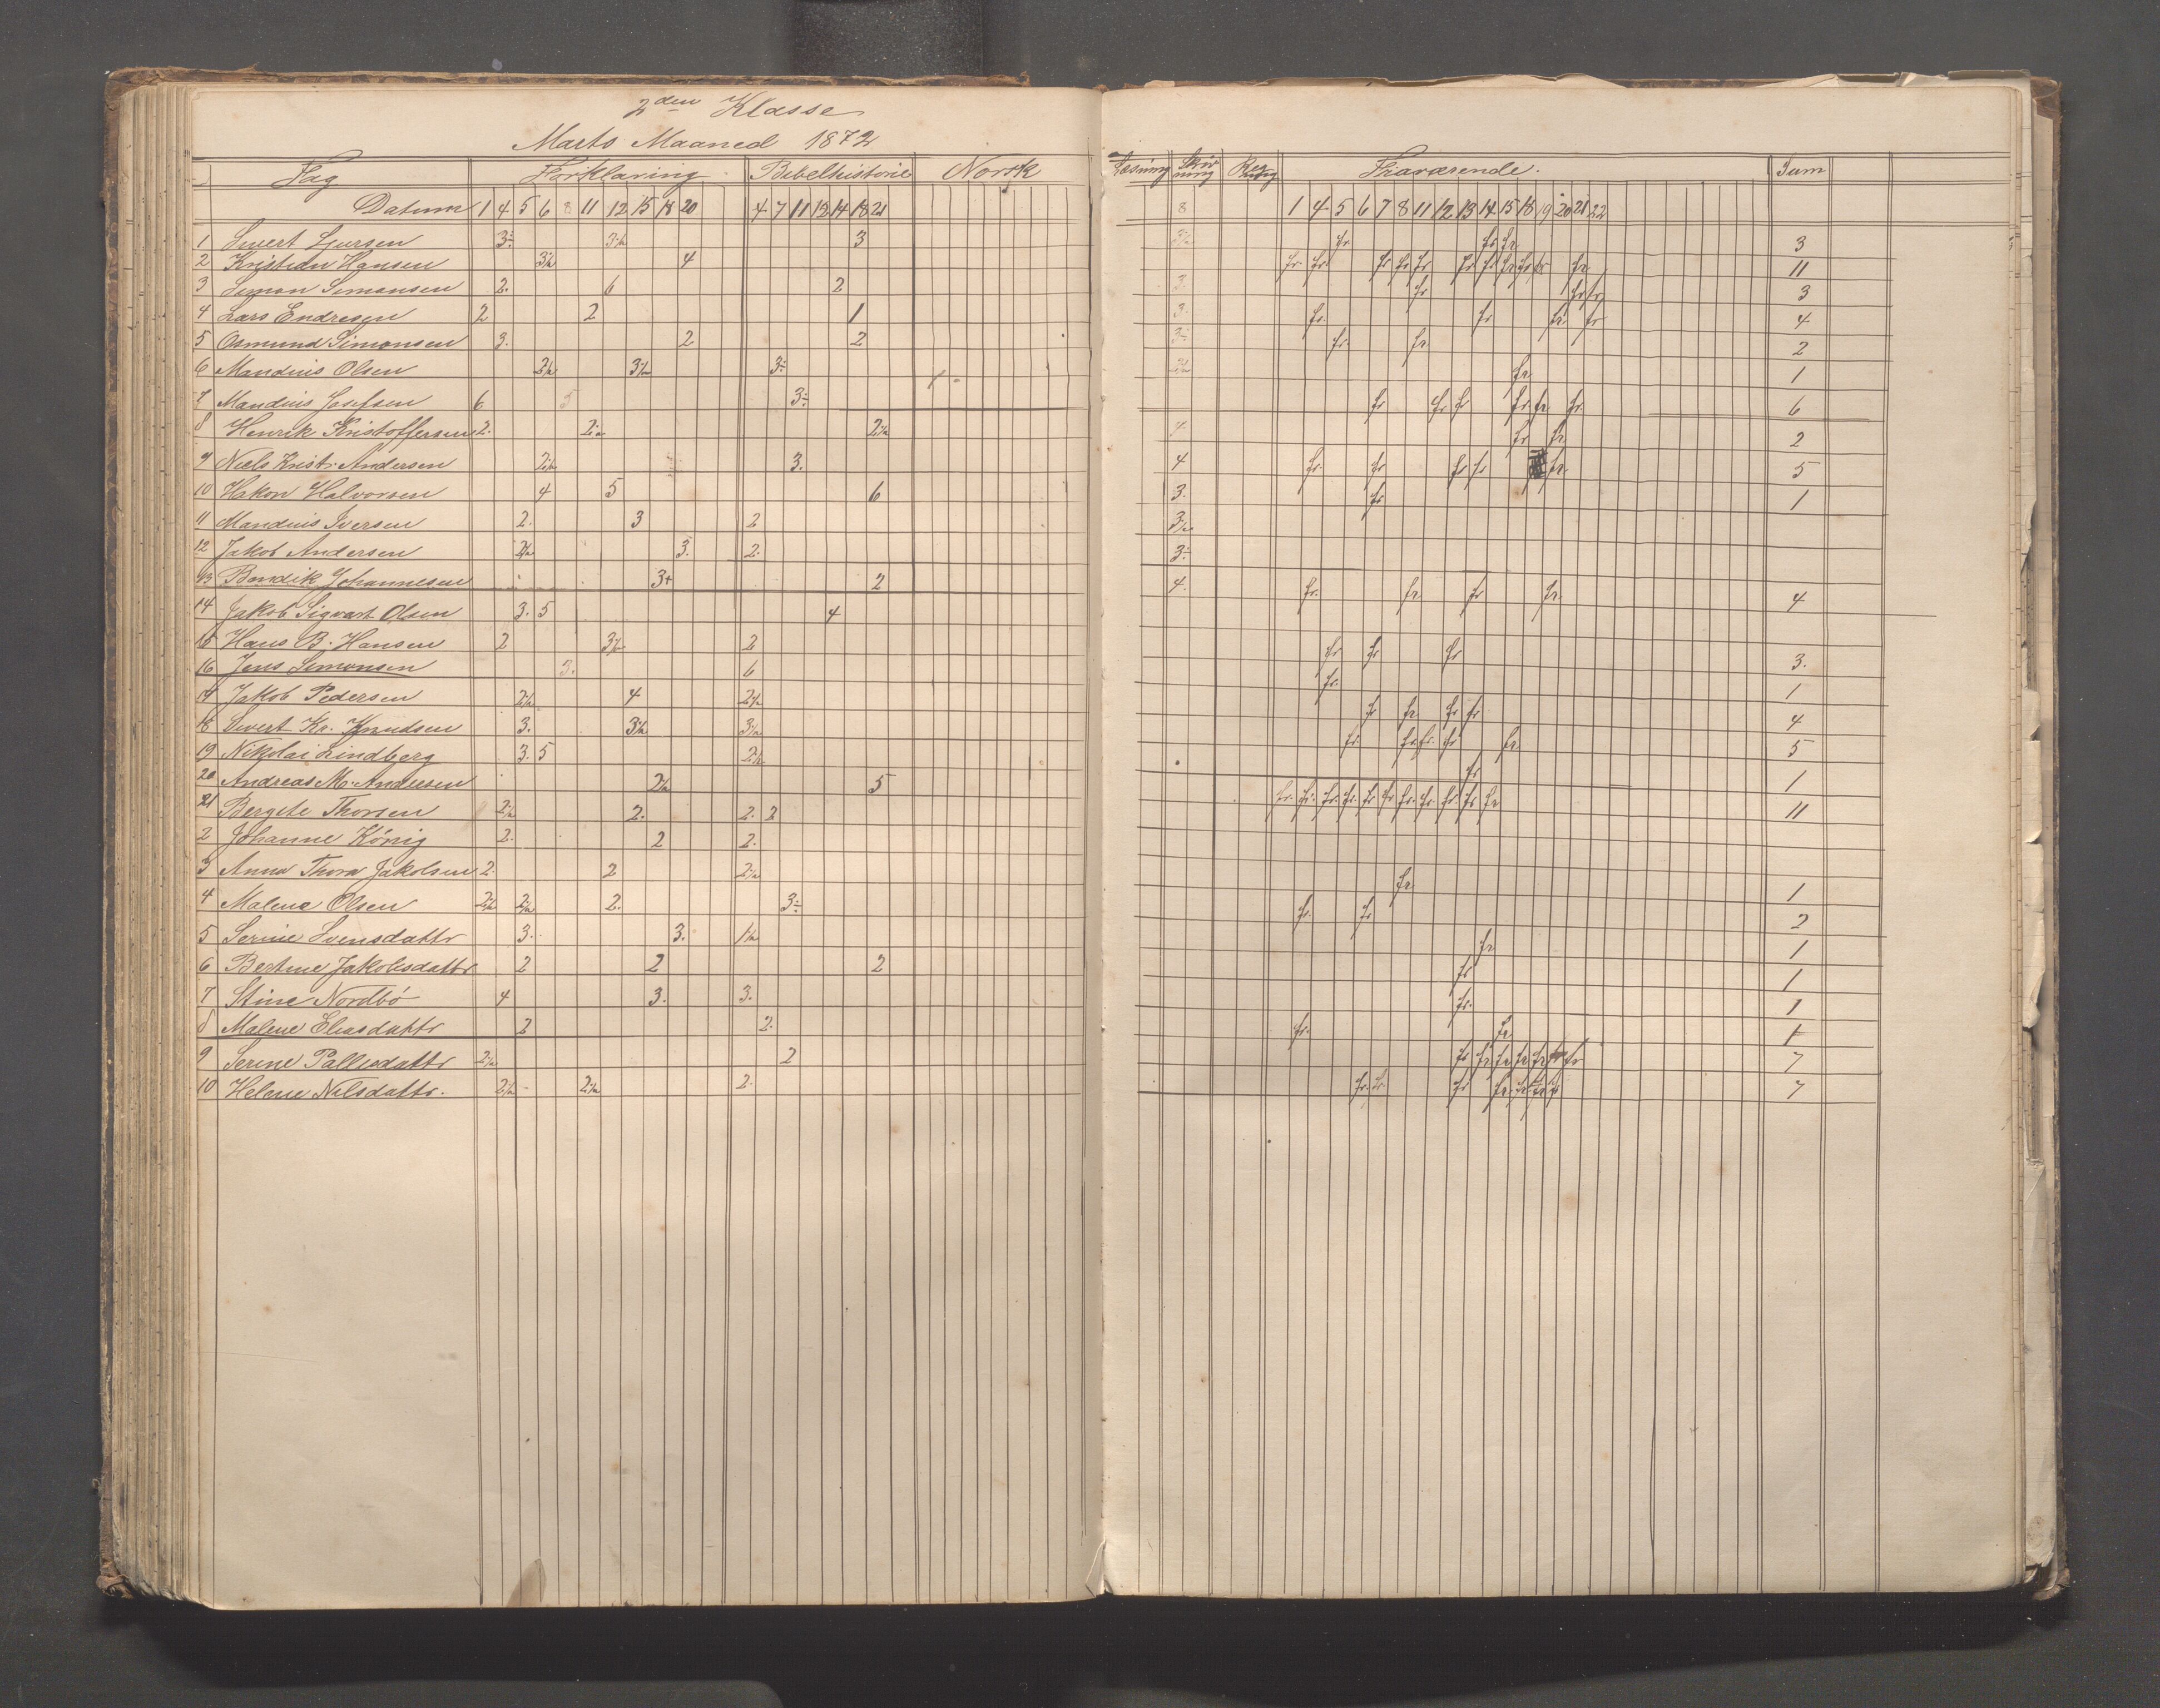 2den Klasse
Marts Maaned 1872
Fag Forklaring Bibelhistorie Norsk Læsning Skrivning Regning Fraværende. Sum
Datum 1 4 5 6 8 11 12 15 18 20 4 7 11 12 14 18 21 8 1 4 5 6 7 8 11 12 13 14 15 18 19 20 21 22
1 Sivert Sjursen 3 fr. fr fr 3
2 Kristian Hansen 4 fr. fr. fr fr fr fr fr fr fr fr fr 11
3 Simon Simonsen 2. 6 2 3. fr fr fr 3
4 Lars Endresen 2 2 1 3. fr. fr fr. fr 4
5 Osmund Simonsen 3. 2 2 fr. fr. 2
6 Mandius Olsen fr. 1
7 Mandius Josefsen 6 5 fr fr fr fr. fr. fr. 6
8 Henrik Kristoffersen 2. 4 fr fr 2
9 Niels Kristi. Andersen 3. 4 fr. fr fr fr fr. 5
10 Hakon Halvorsen 4 5 6 3. fr 1
11 Mandius Iversen 2. 3 2
12 Jakob Andersen 3. 2.
13 Bendik Johannesen 3+ 2 4. fr. fr. fr fr. 4
14 Jakob Sigvart Olsen 3. 5 4
15 Hans B. Hansen 2 2 fr fr fr 3.
16 Jens Simonsen 3. 6 fr. 1
17 Jakob Pedersen 4 fr fr. fr fr 4
18 Sivert Kr. Knudsen 3. fr. fr fr. fr fr 5
19 Nikolai Lindberg 3. 5 fr 1
20 Andreas M. Andresen 5 fr. fr. fr. fr. fr fr fr. fr. fr. fr fr 11
21 Bergete Thorsen 2. 2. 2
2 Johanne König 2. 2 2.
3 Anna Thora Jakobsen 2. 2 fr. 1
4 Malene Olsen 2. fr. fr 2
5 Serine Svensdattr 3. 3. fr 1
6 Bertine Jakobsdattr 2 2 2 fr 1
7 Stine Nordbö 4 3. 3. fr. 1
8 Malene Eliasdattr 2 2. fr. fr. 1
9 Serine Pallesdattr 2 fr fr fr fr fr fr fr 7
10 Helene Nilsdattr. 2. fr. fr. fr fr fr fr fr 7